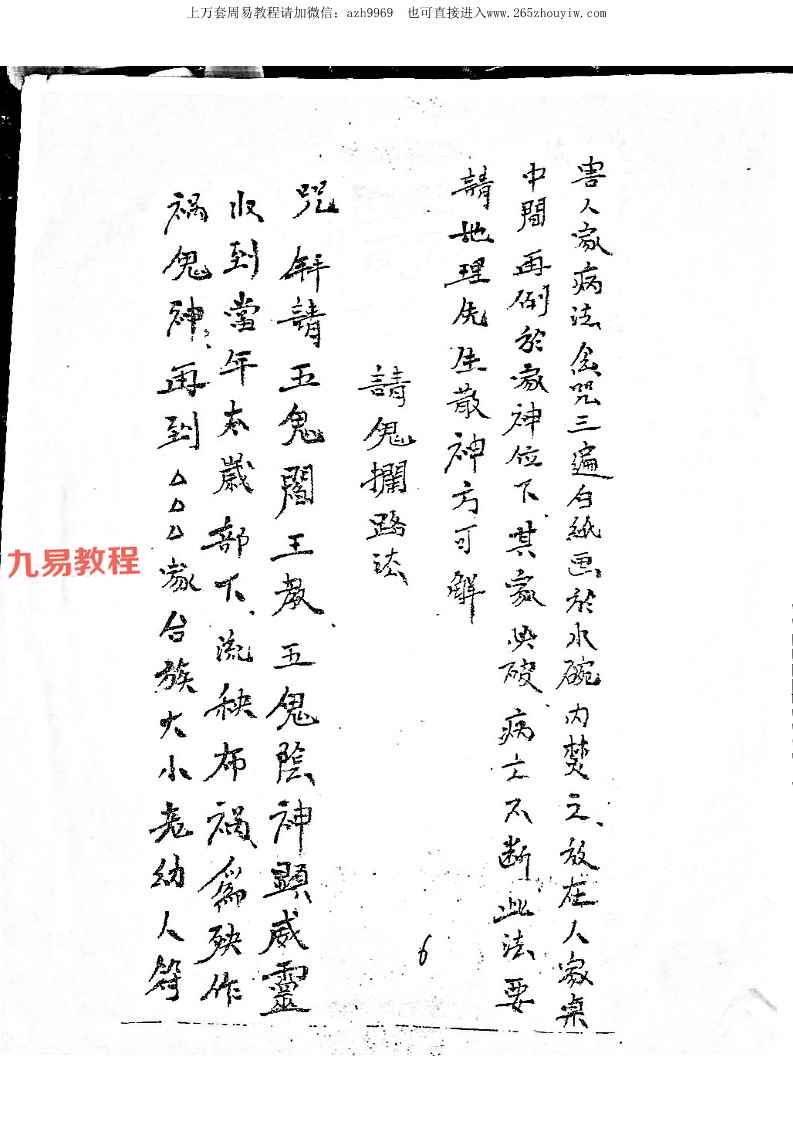 上万套周易教程请加微信：azh9969　也可直接进入www.265zhouyiw.com
害人家病法念咒三遍白紙画於水碗内焚之放在人家桌
中間再倒於家神位下其家興破病亡不断此法要
請地理先生散神方可解
請鬼攔路法
咒 請五鬼閻王教五鬼陰神顯威靈
收到當年太歲部下流秧布禍為殃作
禍鬼神再到△△△家台族大小老幼人
九易教程
6